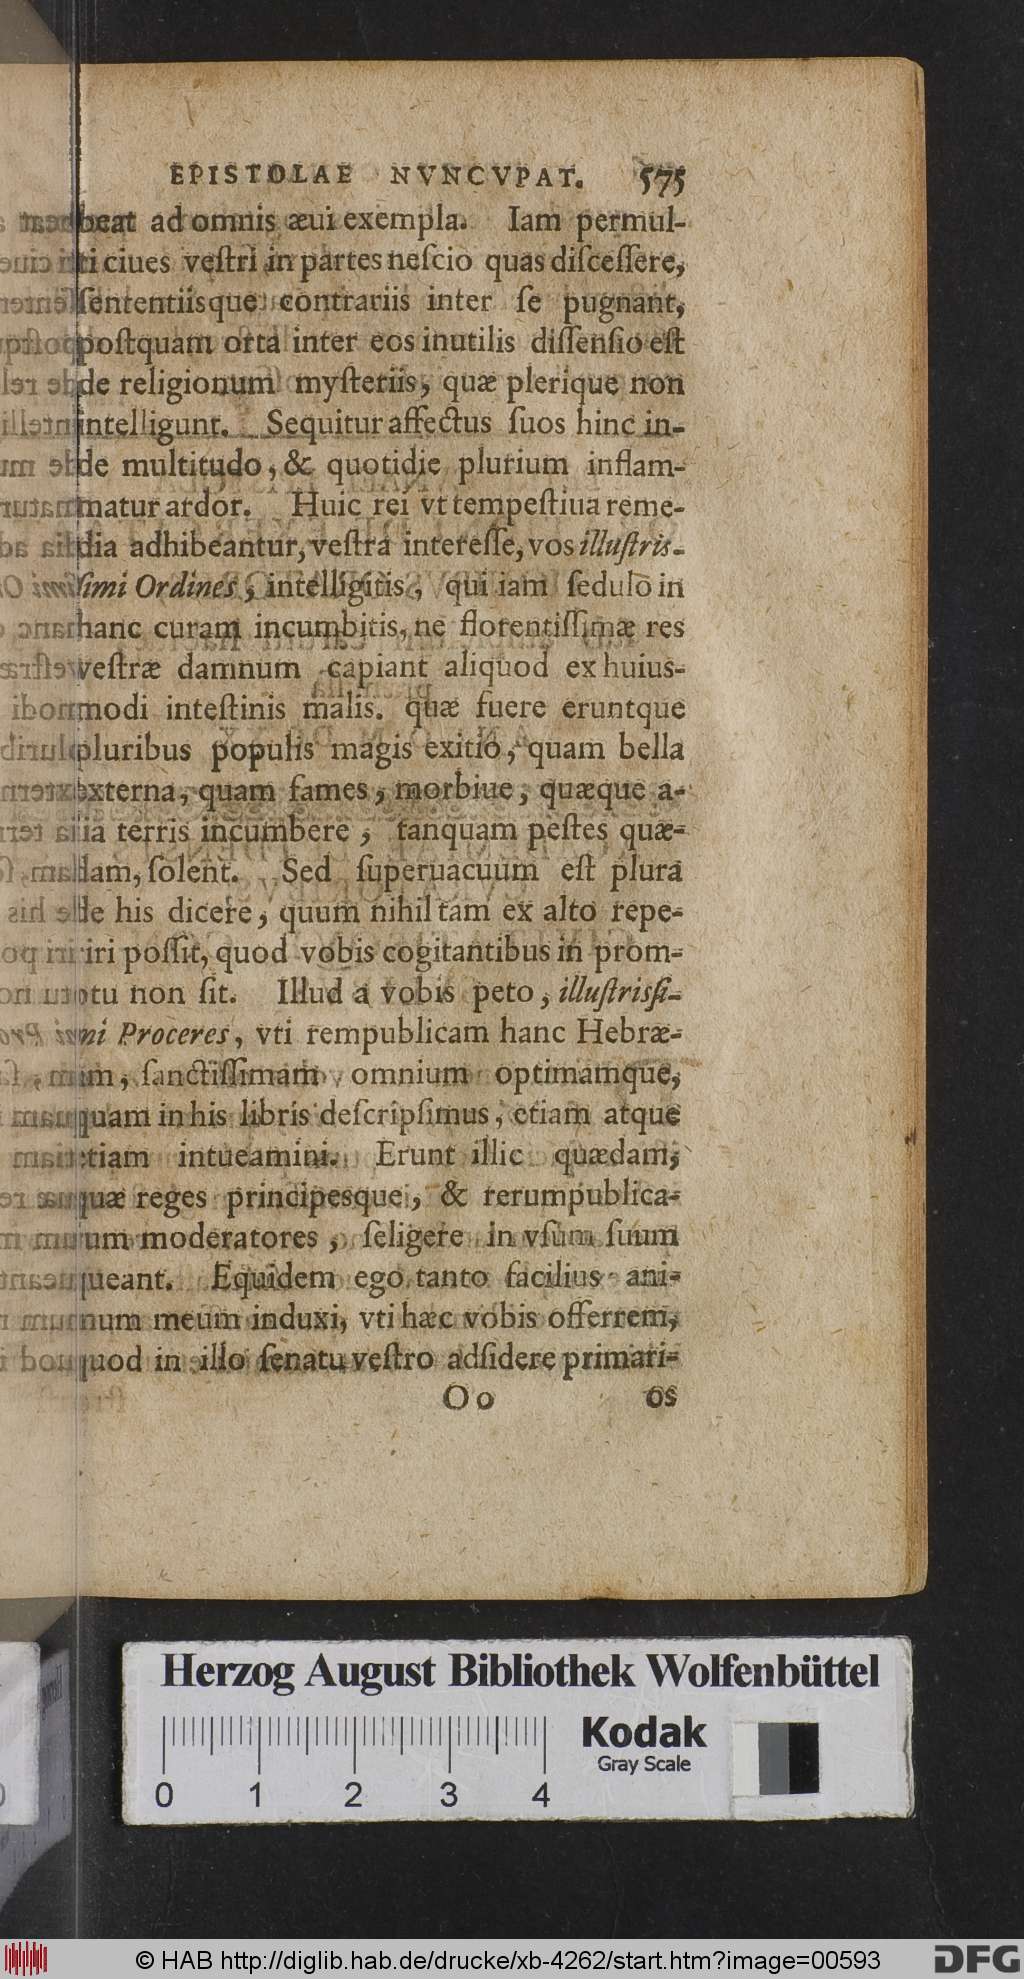 EPISTOLAE NVNCVPAT. 575
beat ad omnis æui exempla. Iam permul-
ti ciues veſtri in partes neſcio quas diſceſſere,
ſententiisque contrariis inter ſe pugnant,
poſtquam orta inter eos inutilis diſſenſio eſt
de religionum myſteriis, quæ plerique non
intelligunt. Sequitur affectus ſuos hinc in-
de multitudo, & quotidie plurium inflam-
matur ardor. Huic rei vt tempeſtiua reme-
dia adhibeantur, veſtrá intereſſe, vos illuſtris-
ſimi Ordines, intelligitis, qui iam ſedulò in
hanc curam incumbitis, ne florentiſſimæ res
veſtræ damnum capiant aliquod ex huius-
modi inteſtinis malis. quæ fuere eruntque
pluribus populis magis exitio, quam bella
externa, quam fames, morbiue, quæque a-
lia terris incumbere, tanquam peſtes quæ-
dam, ſolent. Sed ſuperuacuum eſt plura
de his dicere, quum nihil tam ex alto repe-
riri poſſit, quod vobis cogitantibus in prom-
tu non ſit. Illud a vobis peto, illuſtrisſi-
mi Proceres, vti rempublicam hanc Hebræ-
m, ſanctiſſimam omnium optimamque,
quam in his libris deſcripſimus, etiam atque
etiam intueamini. Erunt illic quædam,
quæ reges principesque, & rerumpublica-
um moderatores, ſeligere in vſum ſuum
queant. Equidem ego tanto facilius ani-
mum meum induxi, vti hæc vobis offerrem,
quod in illo ſenatu veſtro adſidere primari-
Oo os
Herzog August Bibliothek Wolfenbüttel
Kodak
Gray Scale
0 1 2 3 4
© HAB http://diglib.hab.de/drucke/xb-4262/start.htm?image=00593
DFG